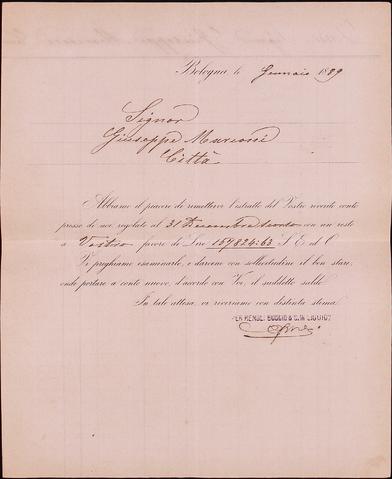 Bologna, li Gennaio 1889
Signor
Giuseppe Marconi
Città
Abbiamo il piacere di rimettervi l'estratto del Vostro riverito conto
presso di noi regolato al 31 Decembre scorso con un resto
a Vostro favore di Lire 159826.63 S. E. ed O.
Vi preghiamo esaminarlo, e darcene con sollecitudine il ben stare,
onde portare a conto nuovo, d'accordo con Voi, il suddetto saldo.
In tale attesa, vi riveriamo con distinta stima
PER RENOLI & C. IN LIQUID?